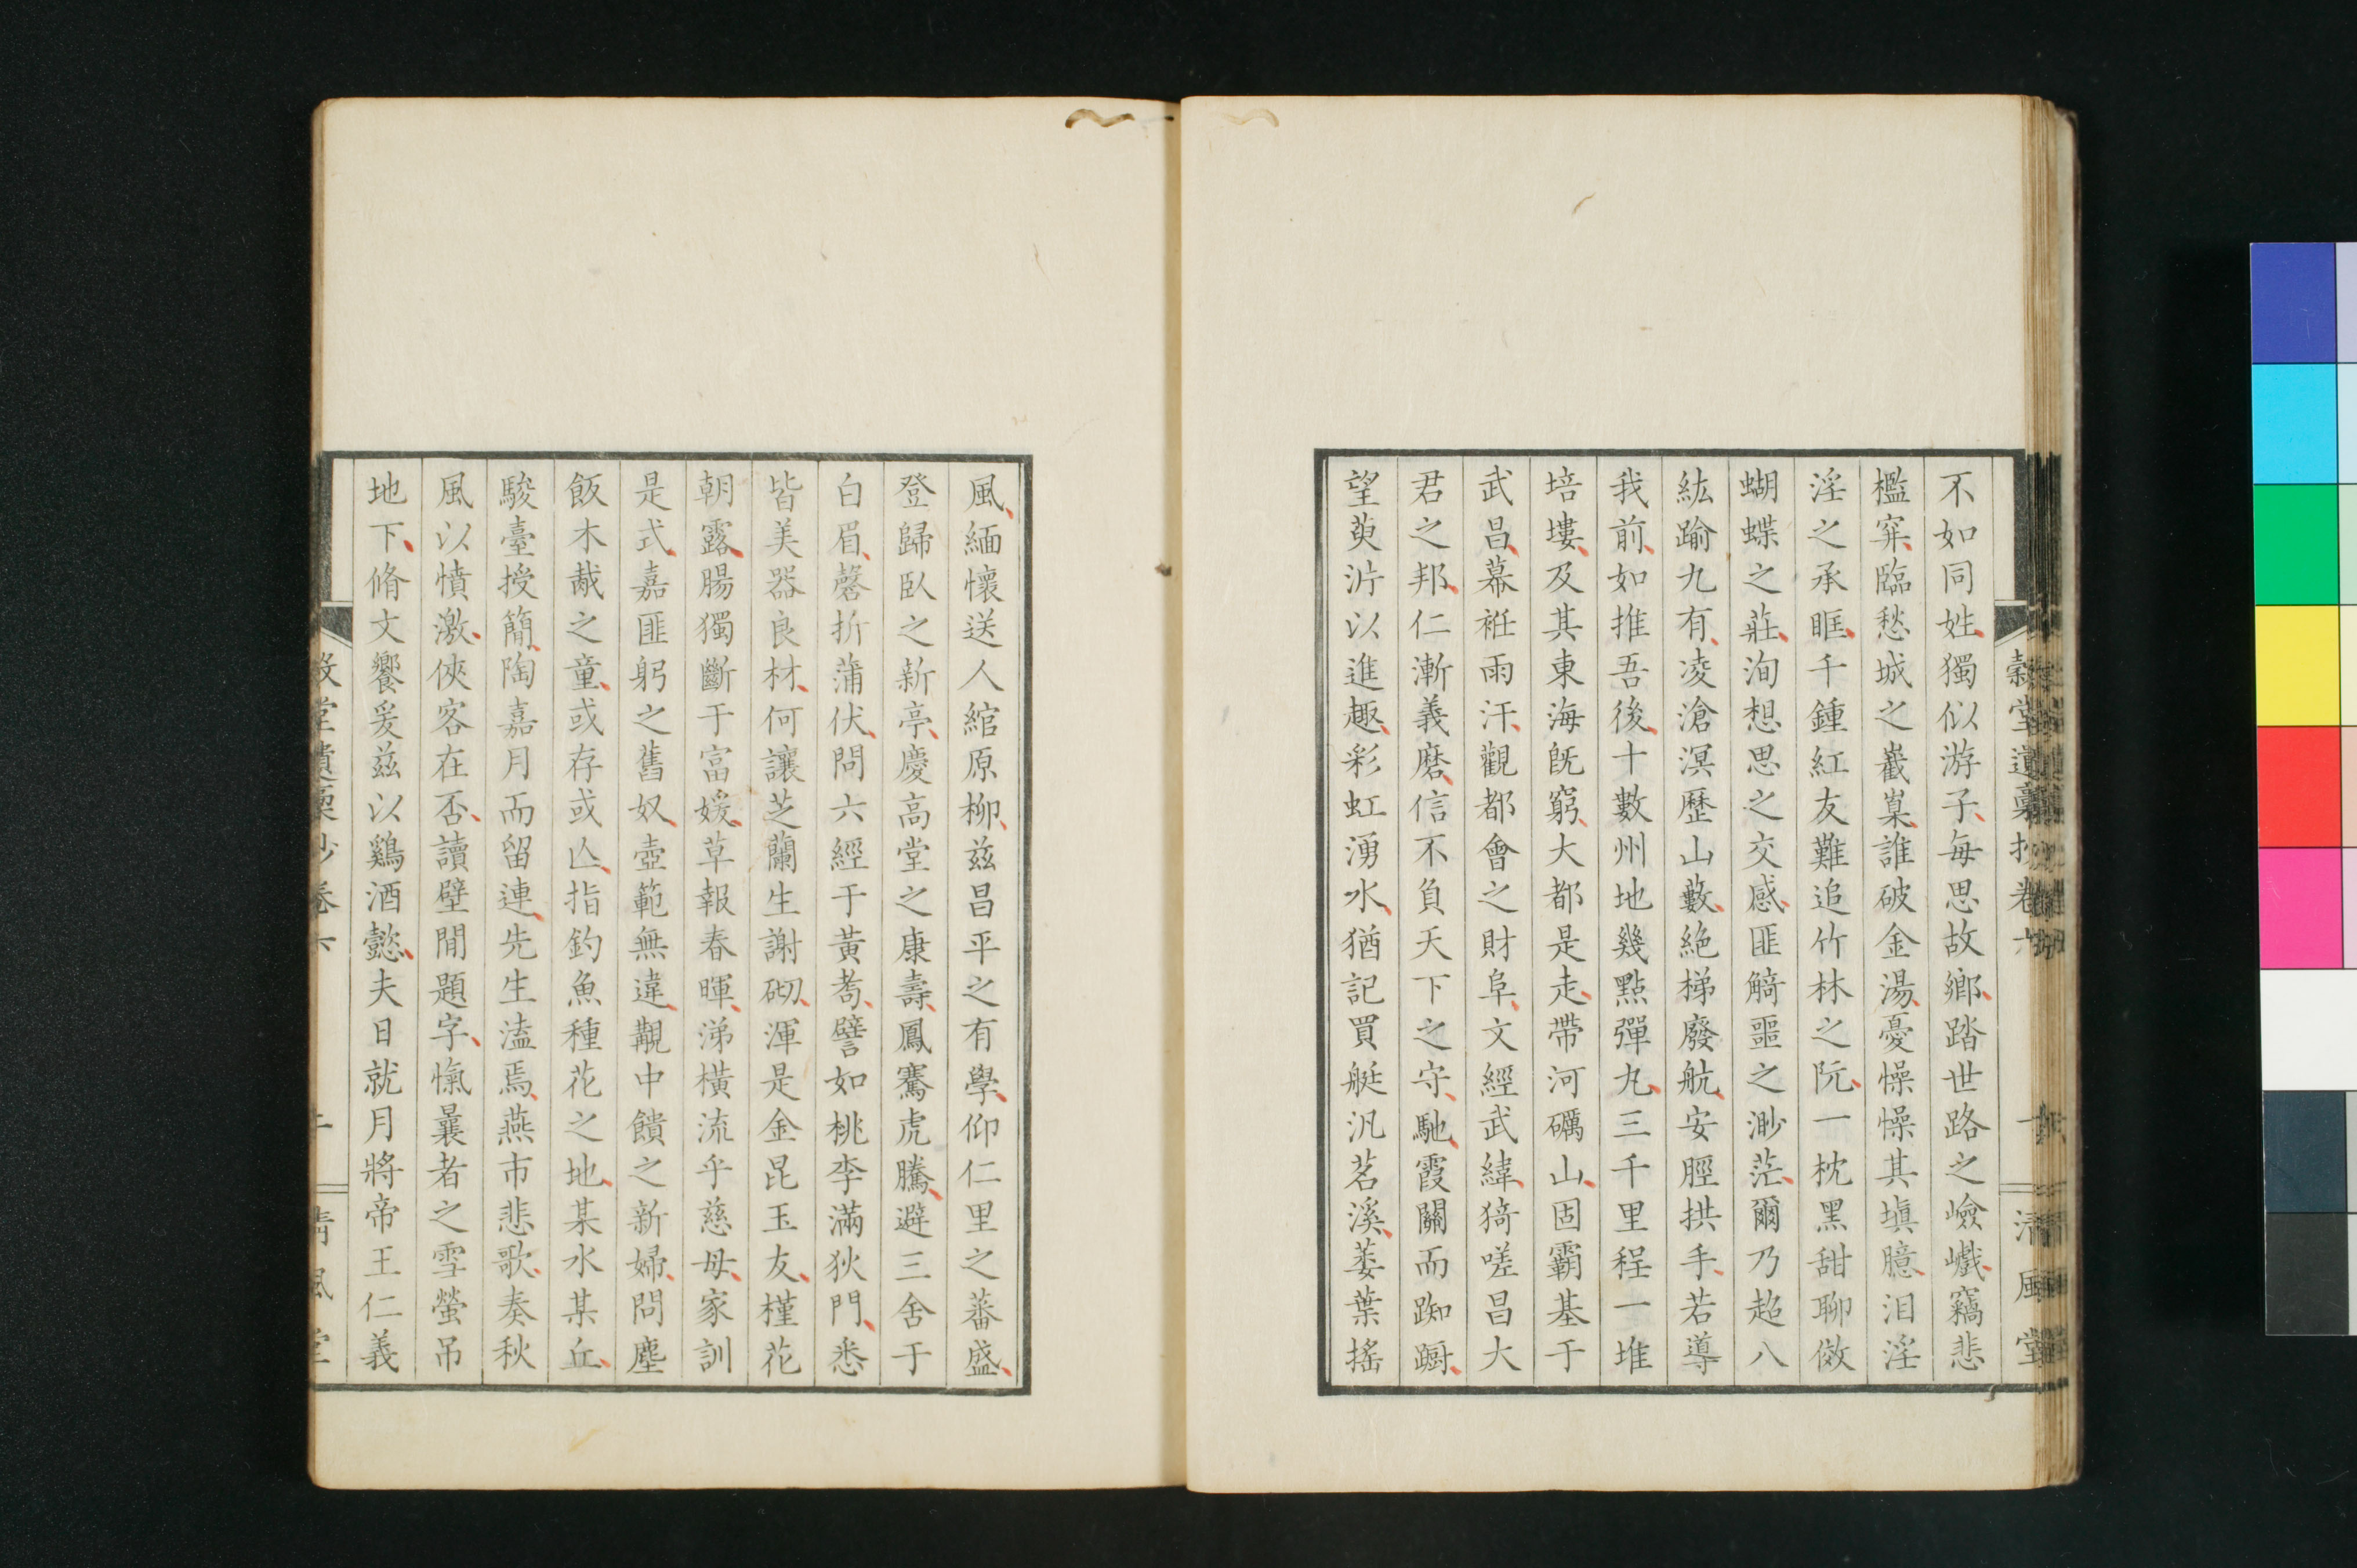 不如同姓獨似游子每思故鄉踏世路之嶮巇竊悲
檻穽臨愁城之嶻嶪誰破金湯憂懆懆其塡臆泪淫
淫之承眶千鍾紅友難追竹林之阮一枕黑甜聊傚
蝴蝶之莊洵想思之交感匪觭噩之渺茫爾乃超八
紘踰九有凌滄溟歷山藪絶梯廢航安脛拱手若導
我前如推吾後十數州地幾點彈丸三千里程一堆
培塿及其東海既窮大都是走帶河礪山固霸基于
武昌幕袵雨汗觀都會之財阜文經武緯猗嗟昌大
君之邦仁漸義磨信不負天下之守馳霞關而踟蹰
望萸沜以進趣彩虹湧水猶記買艇汎茗溪萎葉搖
風緬懷送人綰原柳兹昌平之有學仰仁里之蕃盛
登歸臥之新亭慶高堂之康壽鳳騫虎騰避三舍于
白眉磬折蒲伏問六經于黃耉譬如桃李滿狄門悉
皆美器良材何讓芝蘭生謝砌渾是金昆玉友槿花
朝露腸獨斷于富媛草報春暉涕橫流乎慈母家訓
是式嘉匪躬之舊奴壼範無違覯中饋之新婦問塵
飯木胾之童或存或亾指釣魚種花之地某水某丘
駿臺授簡陶嘉月而留連先生溘焉燕市悲歌奏秋
風以憤激俠客在否讀壁間題字愾曩者之雪螢吊
地下脩文饗爰兹以鷄酒懿夫日就月將帝王仁義
堂遺稾抄卷六
清風堂